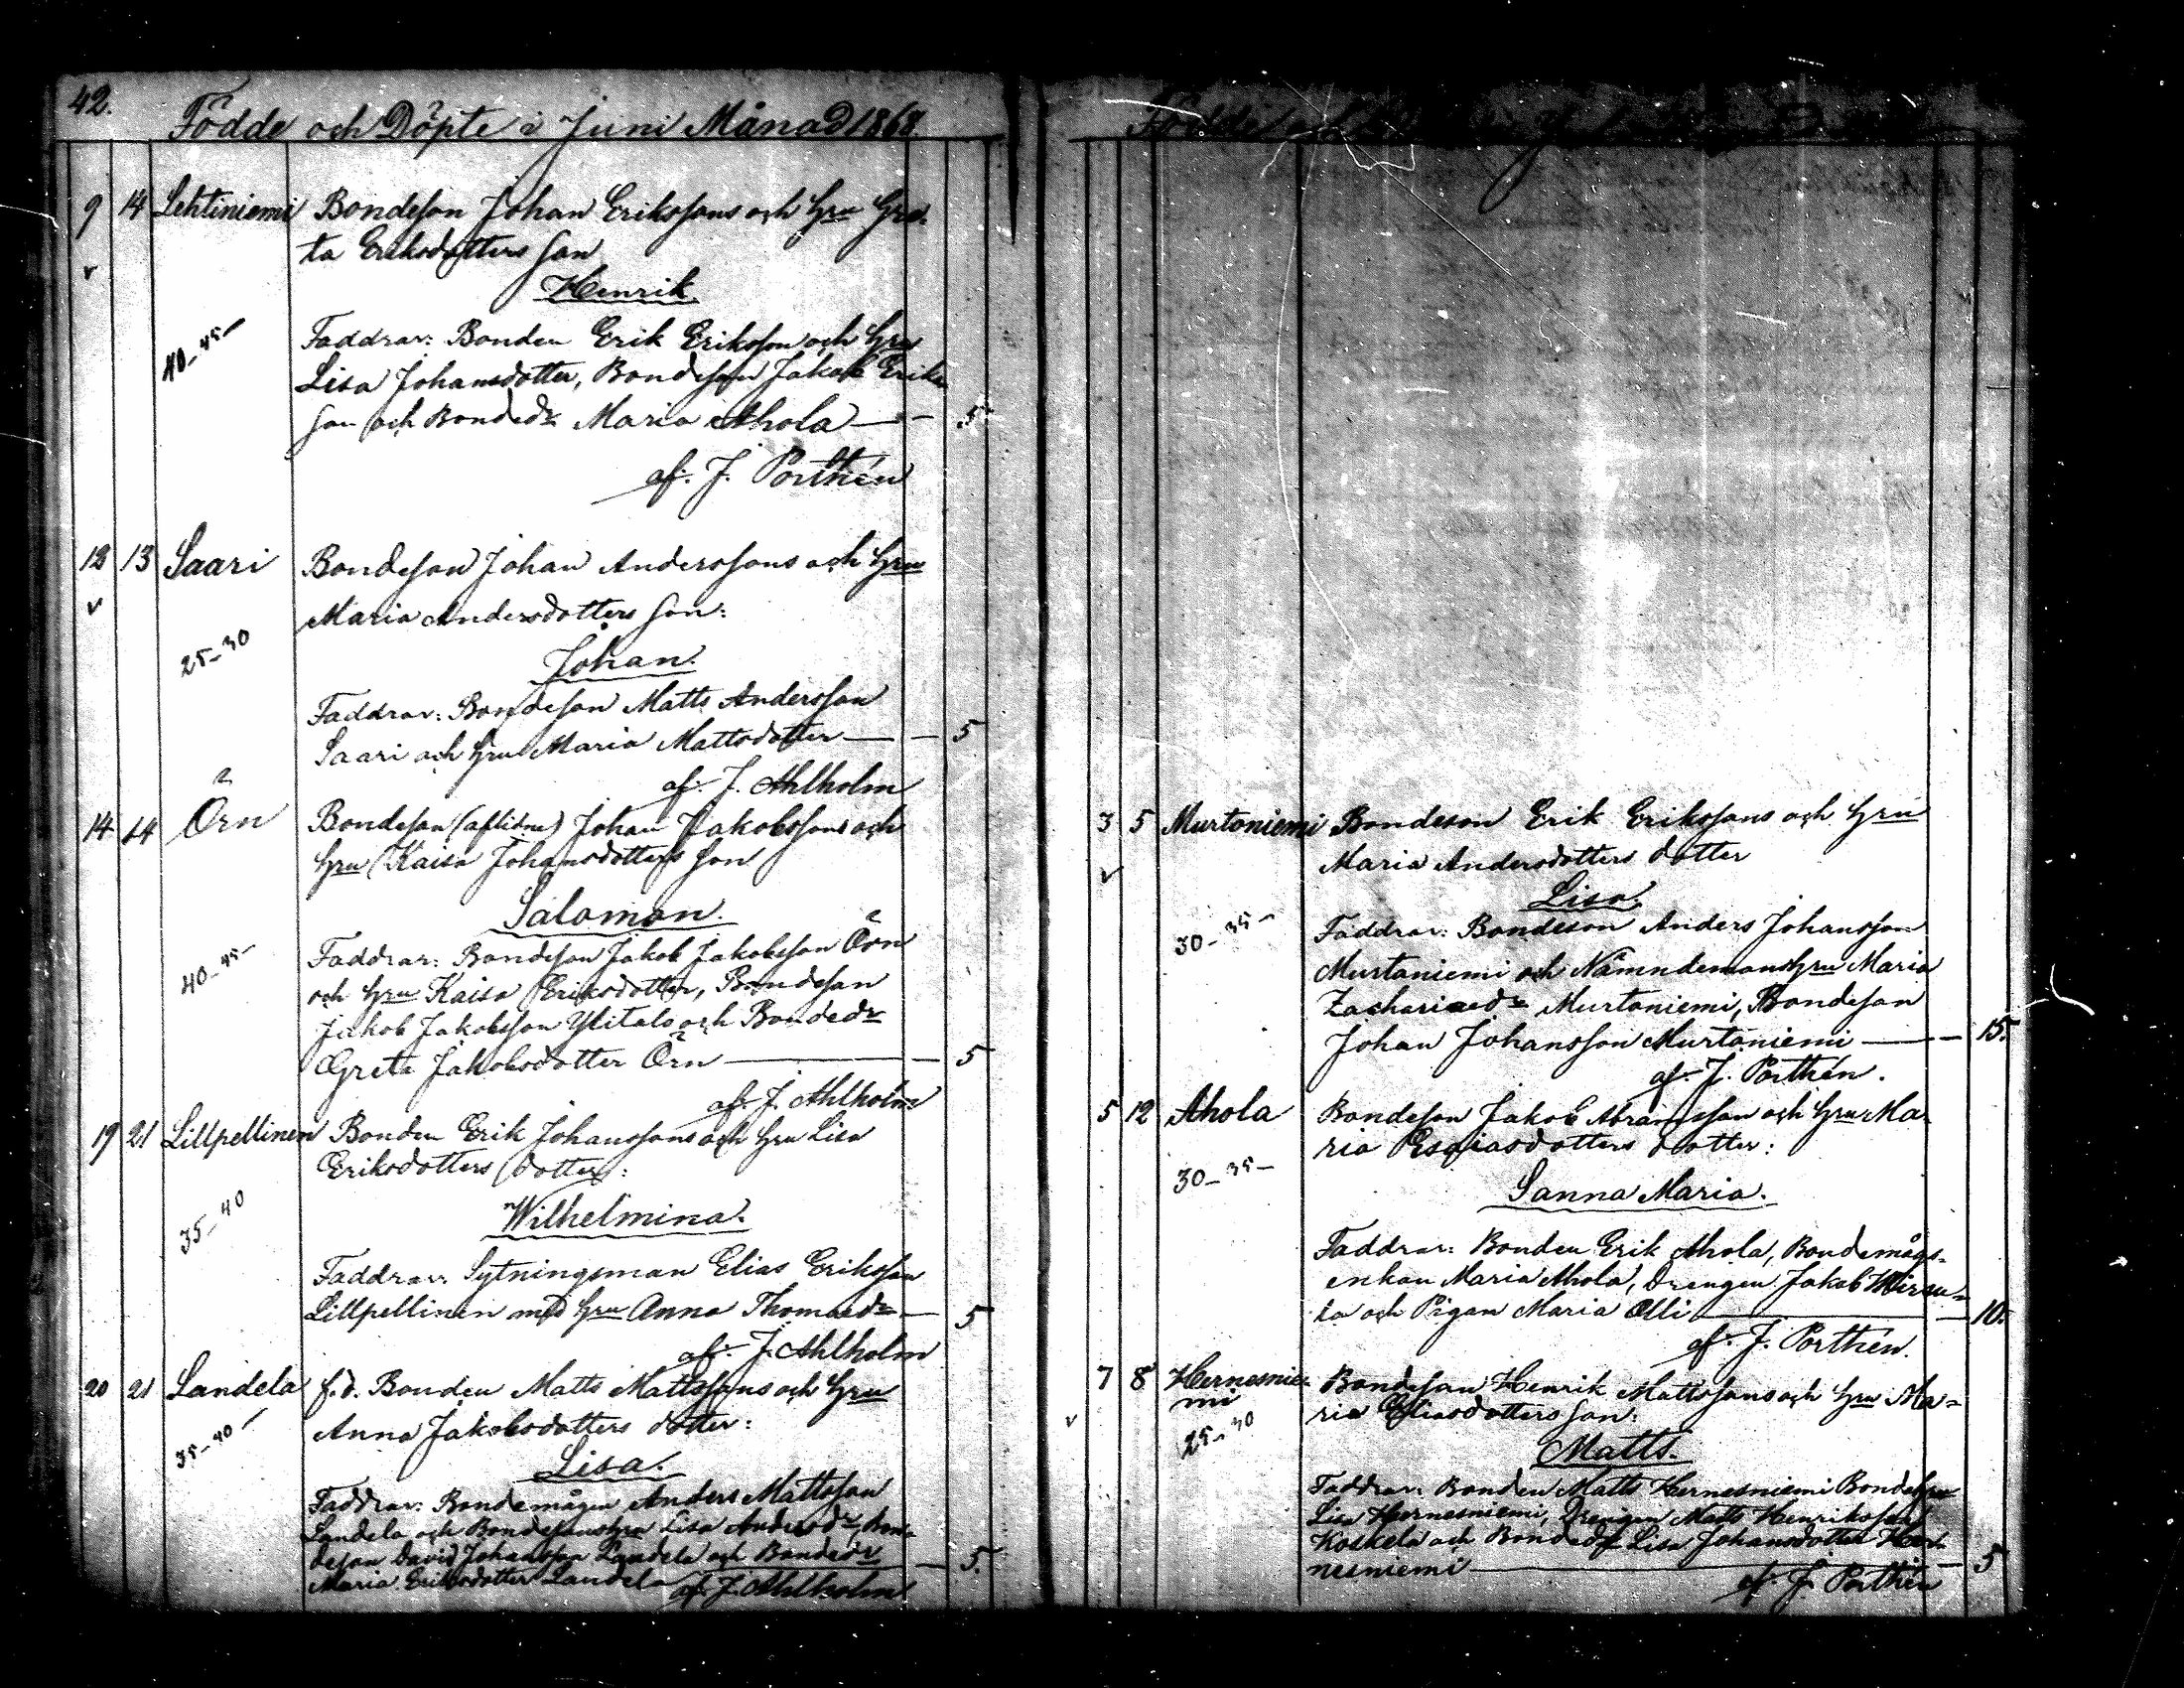 42.
Födde och Döpte i Juni Månad 1868
9 14 Lehtiniemi Bondeson Johan Erikssons och hru Gre-
ta Eriksdotters son
Henrik
40-45
Faddrar: Bonden Erik Eriksson och hru
Lisa Johansdotter, Bondeson Jakob Eriks
son och Bondedr Maria Ahola — 5
af. J. Porthén
12 13 Saari Bondeson Johan Anderssons och hru
Maria Andersdotters son:
25-30
Johan.
Faddrar: Bondeson Matts Andersson
Saari och hru Maria Mattsdotter — 5
af. J. Ahlholm
14 14 Örn Bondeson (aflidne) Johan Jakobssons och
hru Kaisa Johansdotters son
Salomon.
40-45-
Faddrar: Bondeson Jakob Jakobsson Örn
och hru Kaisa Eriksdotter, Bondeson
Jakob Jakobsson Ylitalo och Bondedr
Greta Jakobsdotter Örn — 5
af. J. Ahlholm
19 21 Lillpellinen Bonden Erik Johanssons och hru Lisa
Eriksdotters dotter:
35-40
Wilhelmina.
Faddrar: Sytningsman Elias Eriksson
Lillpellinen med hru Anna Thomasdr — 5
af. J. Ahlholm
20 21 Sandela f.d. Bonden Matts Mattssons och hru
Anna Jakobsdotters dotter:
35-40
Lisa.
Faddrar: Bondemågen Anders Mattsson
Sandela och Bondesonshru Lisa Andersdr, Bon-
deson David Johansson Sandela och Bondedr
Maria Eriksdotter Sandela — 5.
af. J. Ahlholm
Födde och
3 5 Murtoniemi Bondeson Erik Erikssons och hru
Maria Andersdotters dotter
Lisa
30-35-
Faddrar: Bondeson Anders Johansson
Murtoniemi och Nämndemanshru Maria
Zachariaedr Murtoniemi, Bondeson
Johan Johansson Murtoniemi — 15.
af. J. Porthén.
5 12 Ahola Bondeson Jakob Abramsson och hru Ma-
ria Esaiasdotters dotter:
30-35-
Sanna Maria.
Faddrar: Bonden Erik Ahola, Bondemågs-
enkan Maria Ahola, Drengen Jakob
ta och Pigan Maria Olli — 10.
af. J. Porthén.
7 8 Hernesnie-
mi
Bondeson Henrik Mattssons och hru Ma-
ria Eliasdotters son:
25-30
Matts.
Faddrar: Bonden Matts Hernesniemi Bondehru
Lisa Hernesniemi, Drengen Matts Henriksson
Koskela och Bondedr Lisa Johansdotter Her-
nesniemi — 5
af. J. Porthén